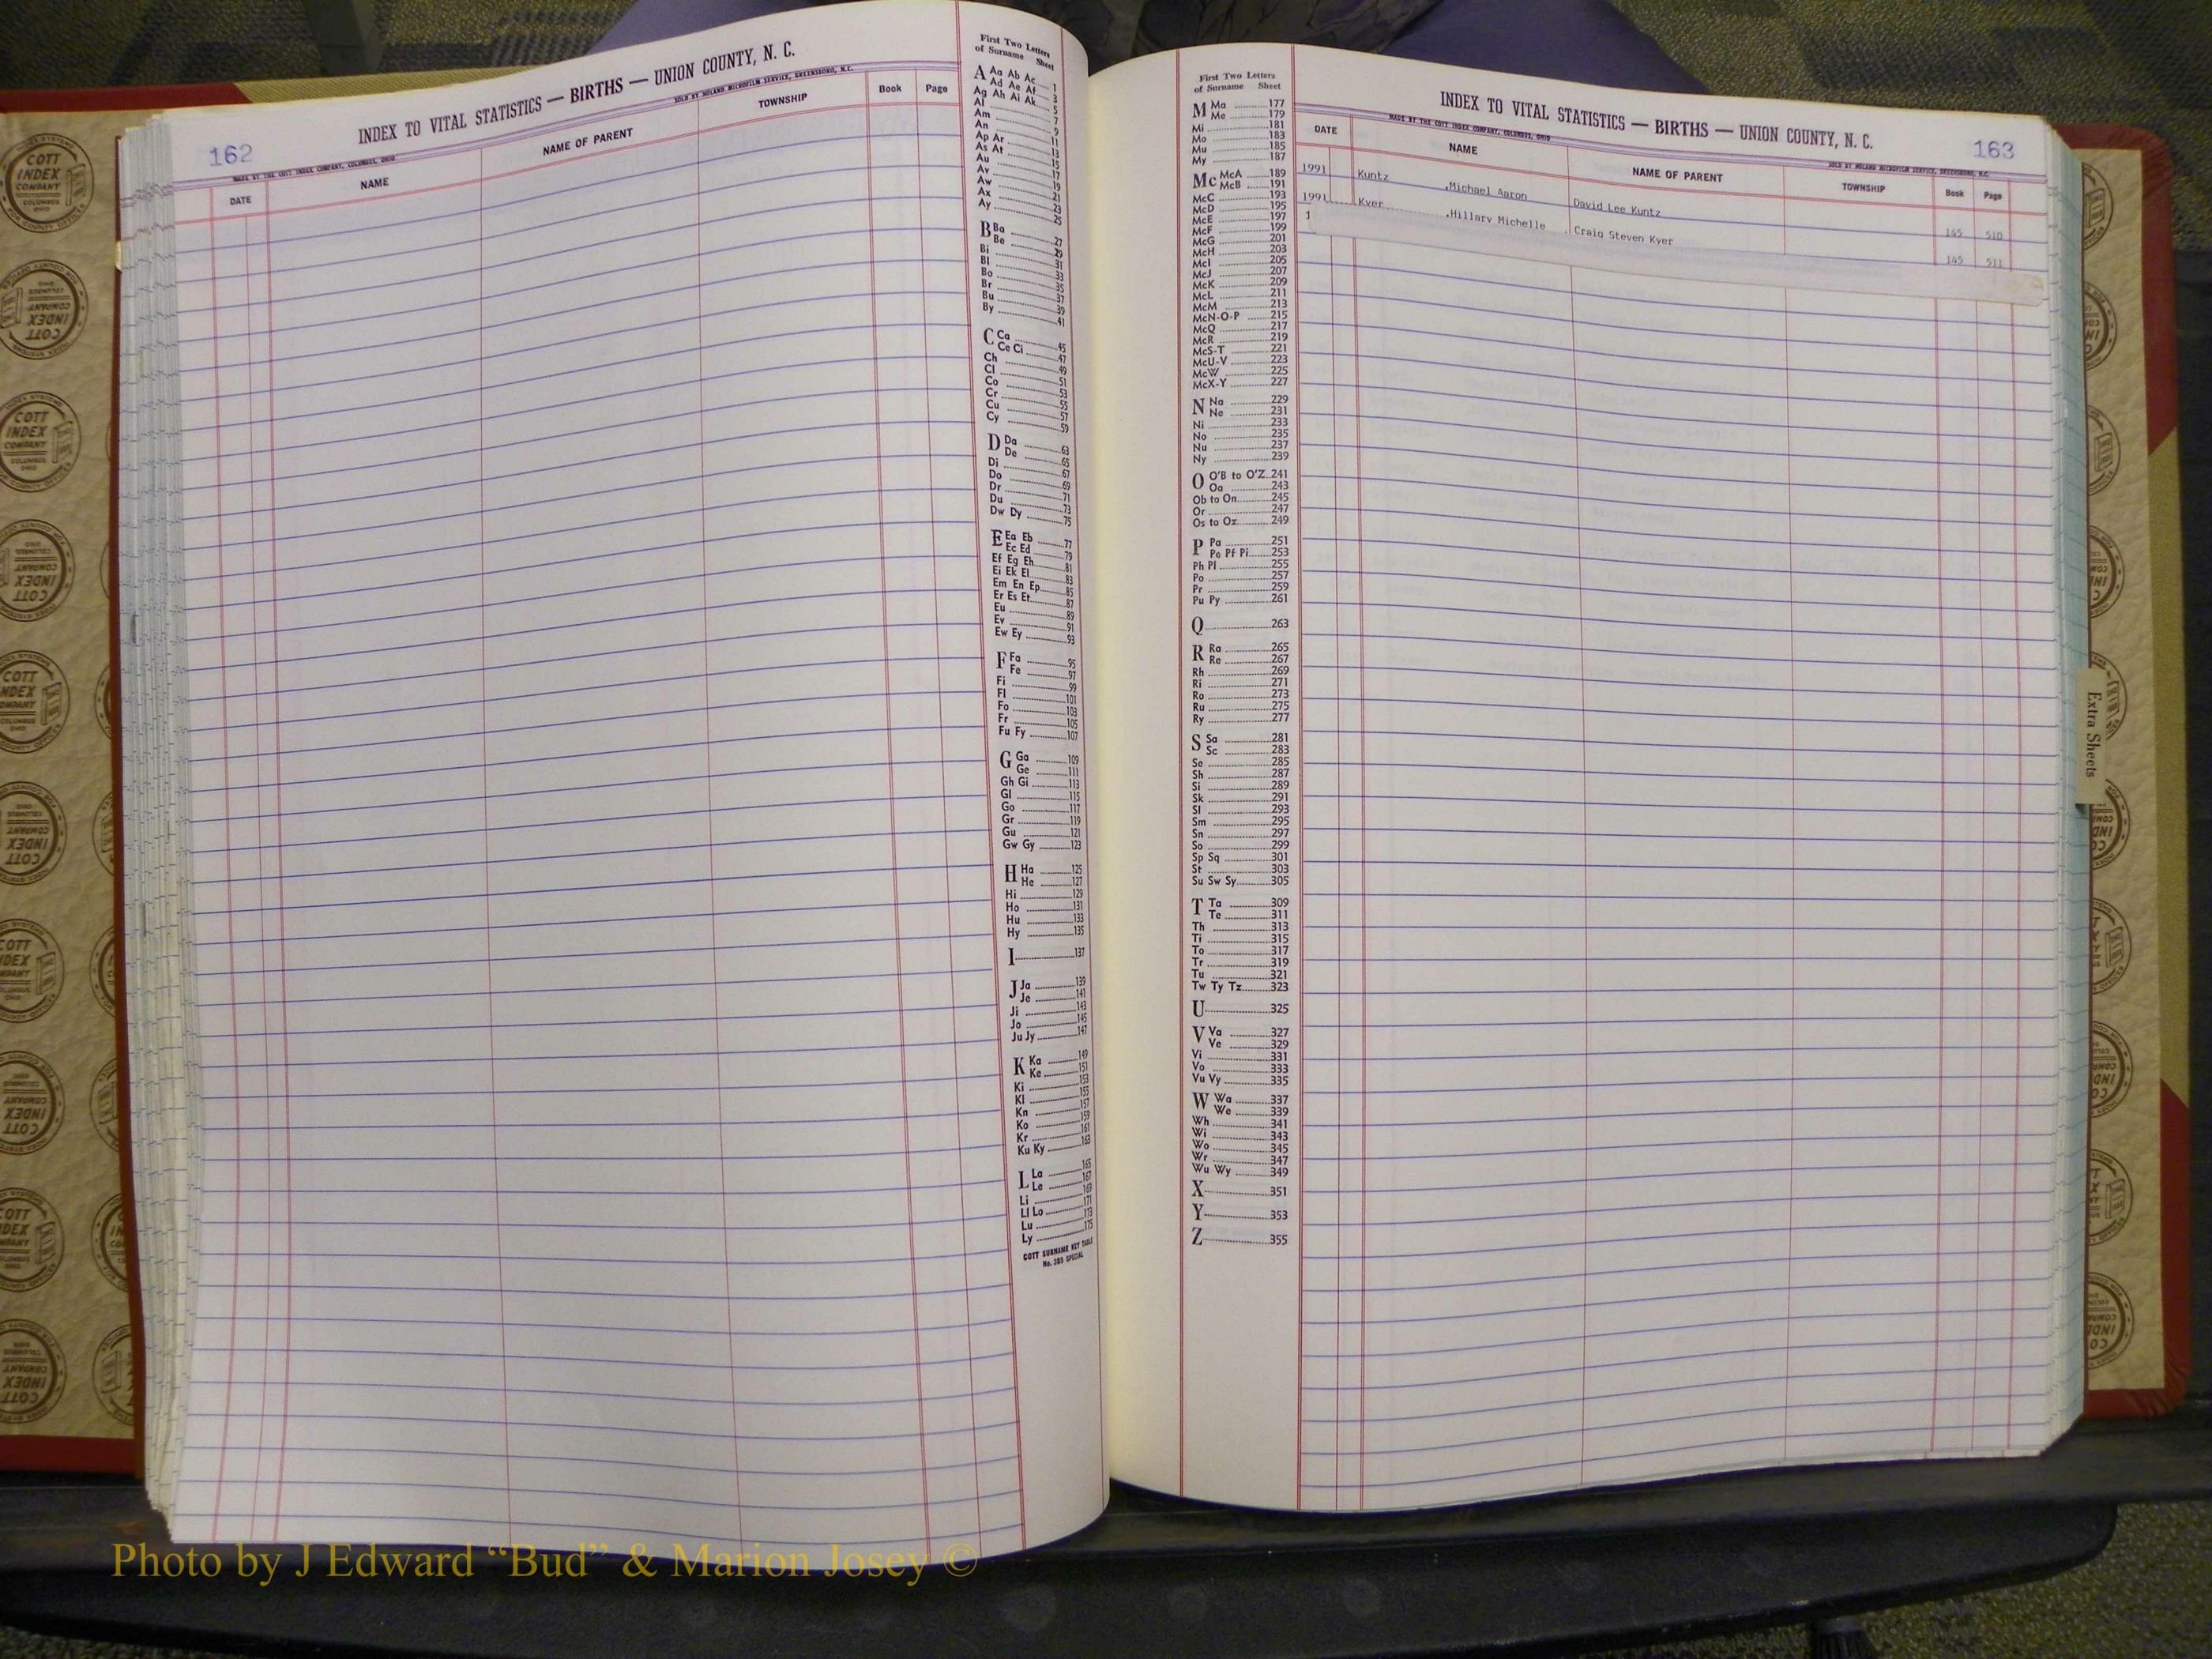 INDEX TO VITAL STATISTICS — BIRTHS — UNION COUNTY, N. C.
162
MADE BY THE COTT INDEX COMPANY, COLUMBUS, OHIO
SOLD BY NOLAND MICROFILM SERVICE, GREENSBORO, N.C.
DATE NAME NAME OF PARENT TOWNSHIP Book Page
First Two Letters
of Surname Sheet
A Aa Ab Ac 1
Ad Ae Af 3
Ag Ah Ai Ak 5
Al 7
Am 9
An 11
Ap Ar 13
As At 15
Au 17
Av 19
Aw 21
Ax 23
Ay 25
B Ba 27
Be 29
Bi 31
Bl 33
Bo 35
Br 37
Bu 39
By 41
C Ca 45
Ce Ci 47
Ch 49
Cl 51
Co 53
Cr 55
Cu 57
Cy 59
D Da 63
De 65
Di 67
Do 69
Dr 71
Du 73
Dw Dy 75
E Ea Eb 77
Ec Ed 79
Ef Eg Eh 81
Ei Ek El 83
Em En Ep 85
Er Es Et 87
Eu 89
Ev 91
Ew Ey 93
F Fa 95
Fe 97
Fi 99
Fl 101
Fo 103
Fr 105
Fu Fy 107
G Ga 109
Ge 111
Gh Gi 113
Gl 115
Go 117
Gr 119
Gu 121
Gw Gy 123
H Ha 125
He 127
Hi 129
Ho 131
Hu 133
Hy 135
I 137
J Ja 139
Je 141
Ji 143
Jo 145
Ju Jy 147
K Ka 149
Ke 151
Ki 153
Kl 155
Kn 157
Ko 159
Kr 161
Ku Ky 163
L La 165
Le 167
Li 169
Ll Lo 171
Lu 173
Ly 175
COTT SURNAME KEY TABLE
No. 385 SPECIAL
First Two Letters
of Surname Sheet
M Ma 177
Me 179
Mi 181
Mo 183
Mu 185
My 187
Mc McA 189
McB 191
McC 193
McD 195
McE 197
McF 199
McG 201
McH 203
McI 205
McJ 207
McK 209
McL 211
McM 213
McN-O-P 215
McQ 217
McR 219
McS-T 221
McU-V 223
McW 225
McX-Y 227
N Na 229
Ne 231
Ni 233
No 235
Nu 237
Ny 239
O O'B to O'Z 241
Oa 243
Ob to On 245
Or 247
Os to Oz 249
P Pa 251
Pe Pf Pi 253
Ph Pl 255
Po 257
Pr 259
Pu Py 261
Q 263
R Ra 265
Re 267
Rh 269
Ri 271
Ro 273
Ru 275
Ry 277
S Sa 281
Sc 283
Se 285
Sh 287
Si 289
Sk 291
Sl 293
Sm 295
Sn 297
So 299
Sp Sq 301
St 303
Su Sw Sy 305
T Ta 309
Te 311
Th 313
Ti 315
To 317
Tr 319
Tu 321
Tw Ty Tz 323
U 325
V Va 327
Ve 329
Vi 331
Vo 333
Vu Vy 335
W Wa 337
We 339
Wh 341
Wi 343
Wo 345
Wr 347
Wu Wy 349
X 351
Y 353
Z 355
INDEX TO VITAL STATISTICS — BIRTHS — UNION COUNTY, N. C.
163
MADE BY THE COTT INDEX COMPANY, COLUMBUS, OHIO
SOLD BY NOLAND MICROFILM SERVICE, GREENSBORO, N.C.
DATE NAME NAME OF PARENT TOWNSHIP Book Page
1991 Kuntz ,Michael Aaron David Lee Kuntz 145 510
1991 Kyer ,Hillary Michelle , Craig Steven Kyer 145 511
1
Extra Sheets
COTT
INDEX
COMPANY
COLUMBUS
OHIO
Photo by J Edward “Bud” & Marion Josey ©